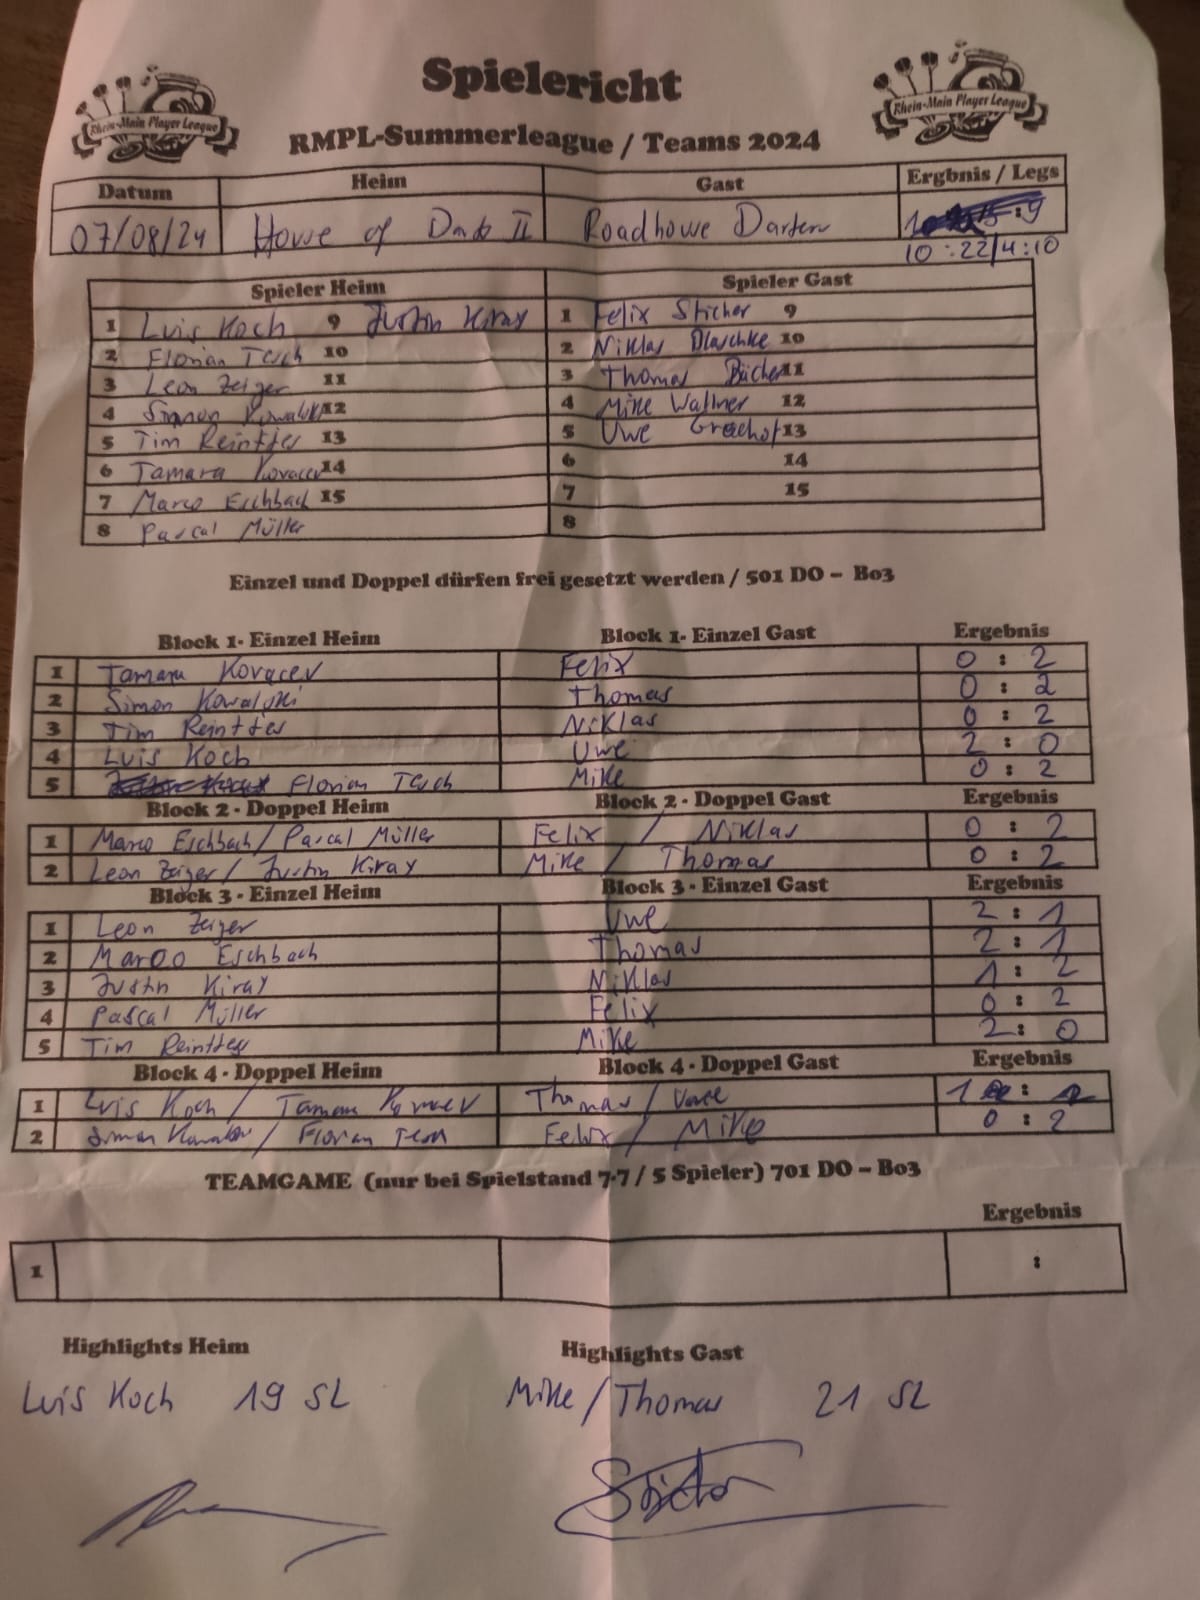 Spielericht
Rhein-Main Player League
Rhein-Main Player League
RMPL-Summerleague / Teams 2024
Datum Heim Gast Ergbnis / Legs
07/08/24 House of Darts II Roadhouse Darten :9
10:22/4:10
Spieler Heim Spieler Gast
1 Luis Koch 9 Justin Kiray 1 Felix Sticher 9
2 Florian Tesch 10 2 Niklas Blaschke 10
3 Leon Zeiger 11 3 Thomas Bücher 11
4 Simon Kowalski 12 4 Mike Wallner 12
5 Tim Reintjes 13 5 Uwe 13
6 Tamara Kovacev 14 6 14
7 Marco Eschbach 15 7 15
8 Pascal Müller 8
Einzel und Doppel dürfen frei gesetzt werden / 501 DO – Bo3
Block 1- Einzel Heim Block 1- Einzel Gast Ergebnis
1 Tamara Kovacev Felix 0 : 2
2 Simon Kowalski Thomas 0 : 2
3 Tim Reintjes Niklas 0 : 2
4 Luis Koch Uwe 2 : 0
5 Florian Tesch Mike 0 : 2
Block 2 - Doppel Heim Block 2 - Doppel Gast Ergebnis
1 Marco Eschbach / Pascal Müller Felix / Niklas 0 : 2
2 Leon Zeiger / Justin Kiray Mike / Thomas 0 : 2
Block 3 - Einzel Heim Block 3 - Einzel Gast Ergebnis
1 Leon Zeiger Uwe 2 : 1
2 Marco Eschbach Thomas 2 : 1
3 Justin Kiray Niklas 1 : 2
4 Pascal Müller Felix 0 : 2
5 Tim Reintjes Mike 2 : 0
Block 4 - Doppel Heim Block 4 - Doppel Gast Ergebnis
1 Luis Koch / Tamara Kovacev Thomas / Uwe 1 : 2
2 Simon Kowalski / Florian Tesch Felix / Mike 0 : 2
TEAMGAME (nur bei Spielstand 7-7 / 5 Spieler) 701 DO – Bo3
Ergebnis
1 :
Highlights Heim Highlights Gast
Luis Koch 19 SL Mike / Thomas 21 SL